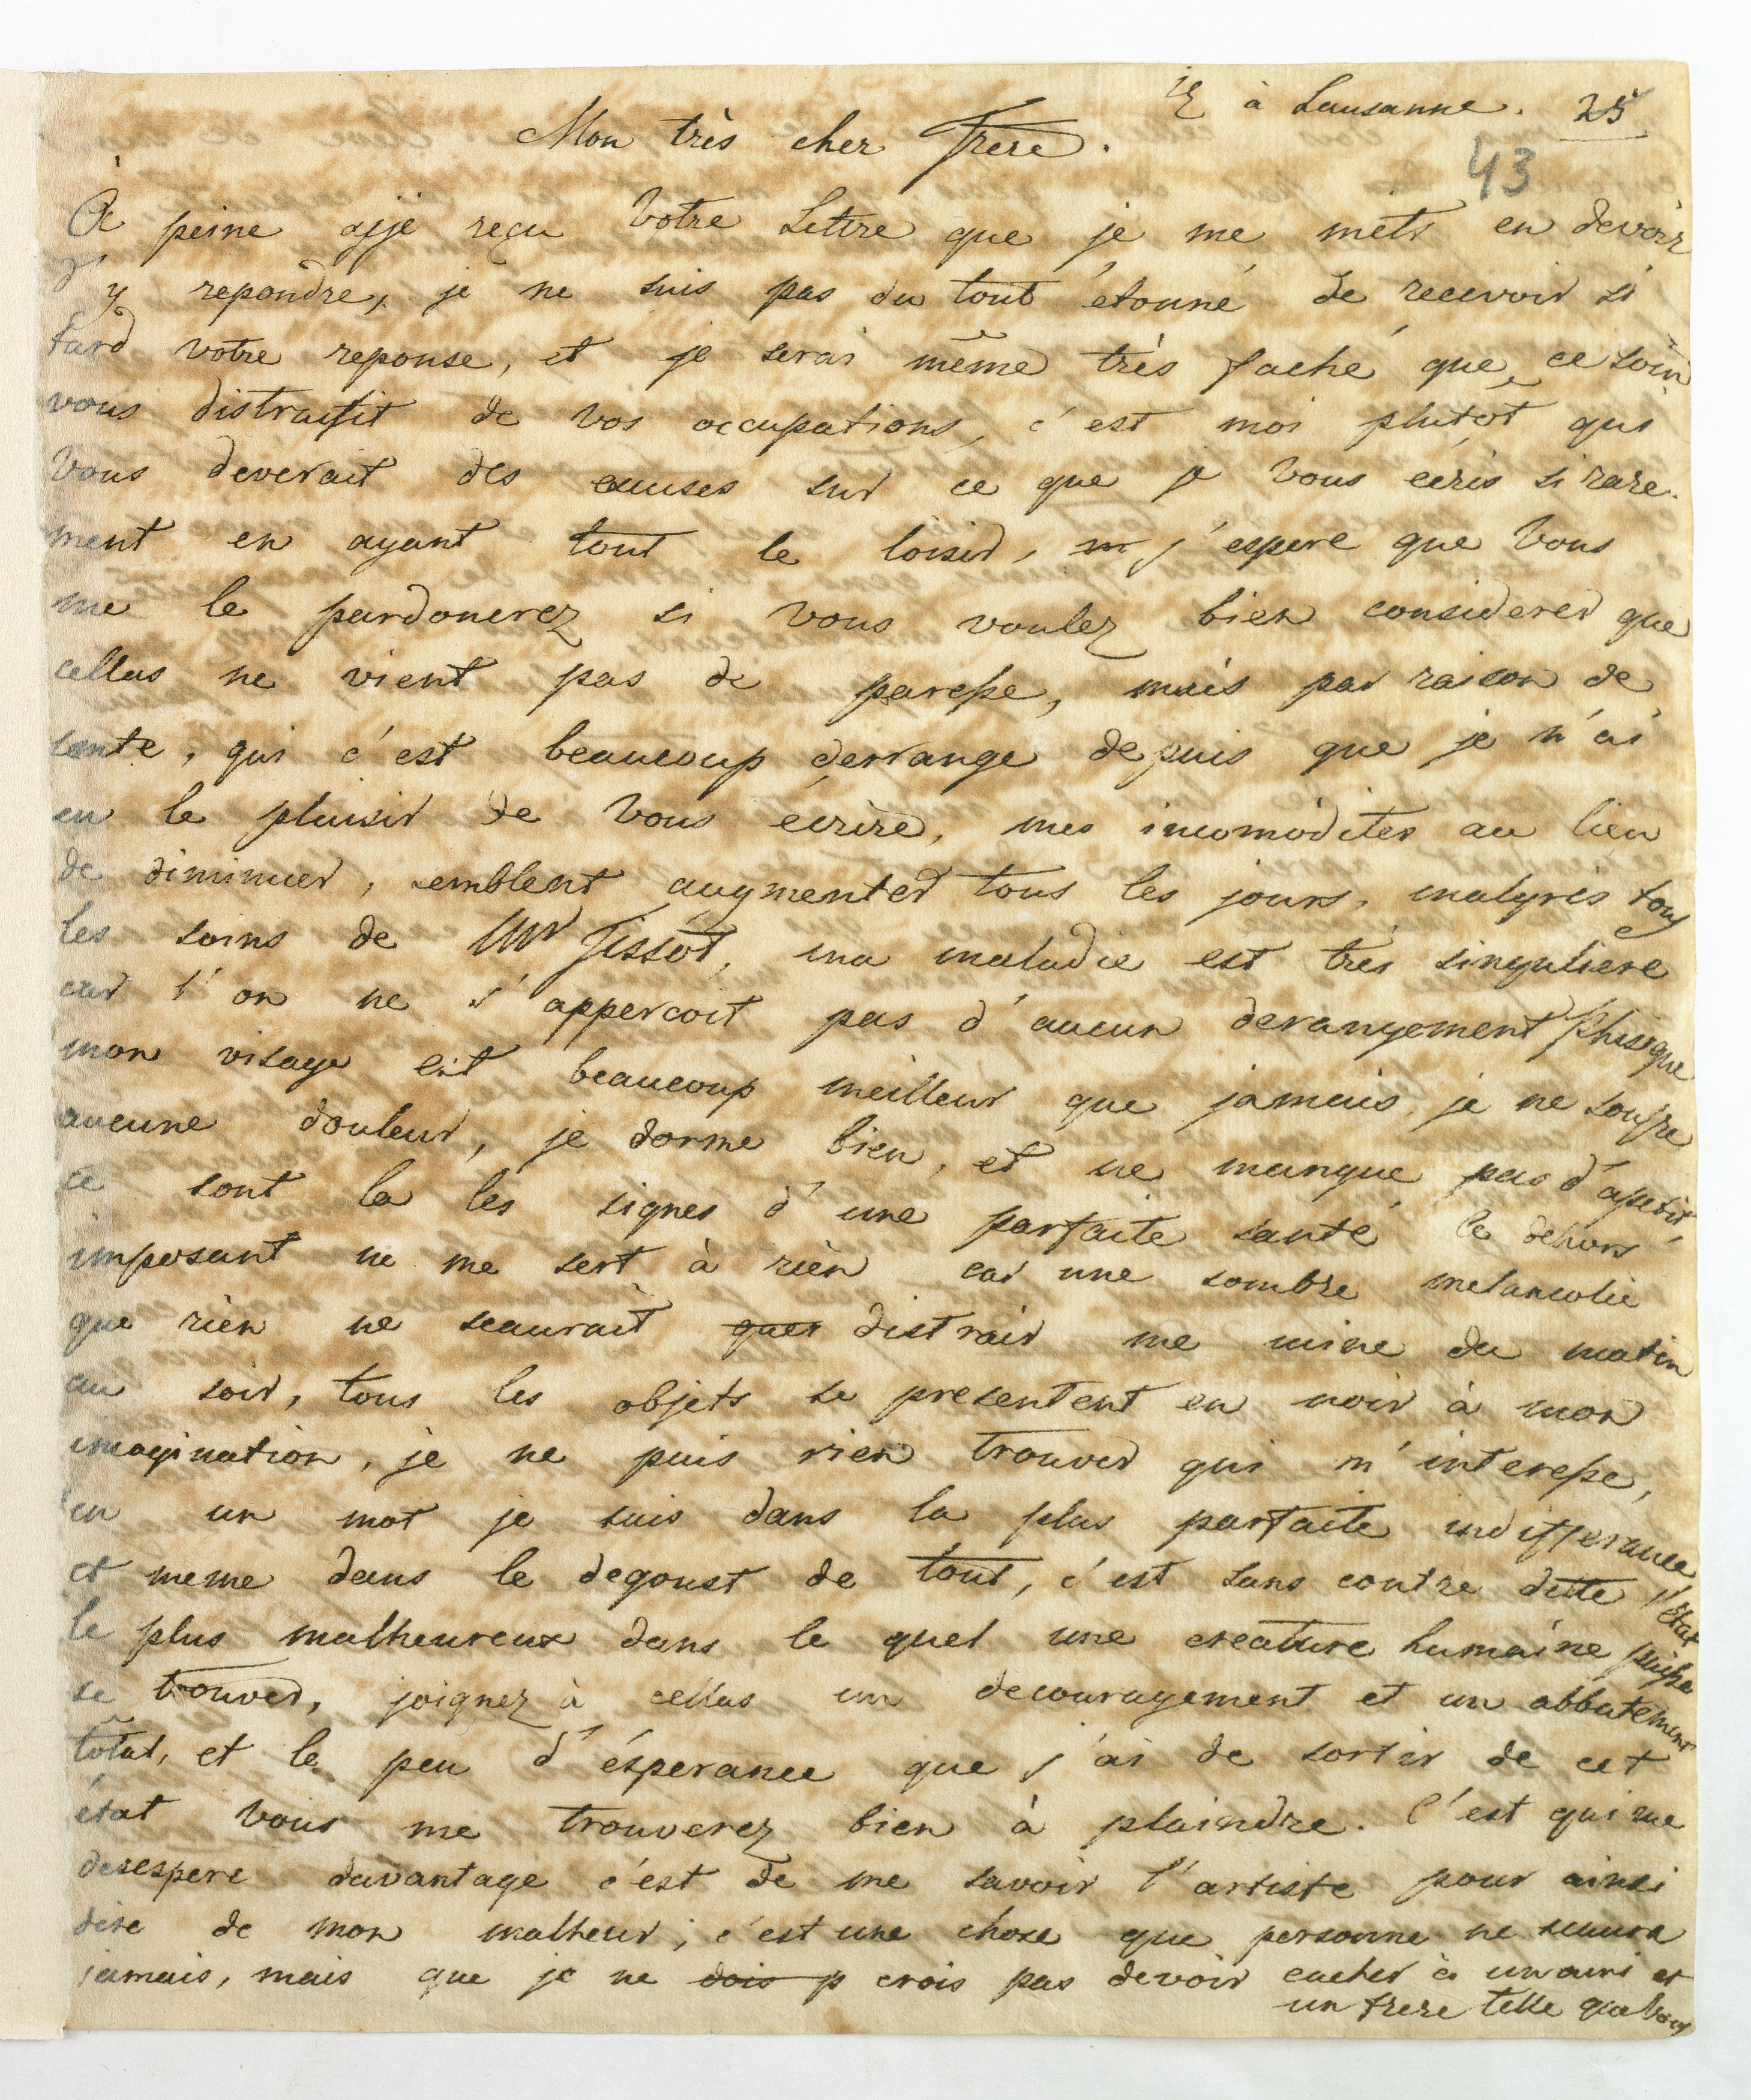 à Lausanne. 25
Mon très cher Frere.
43
À peine ajje reçu Votre Lettre que je me mets en devoir
d'y repondre, je ne suis pas du tout étonné de recevoir si
tard votre reponse, et je serai même très faché que ce soin
vous distraisit de vos occupations, c'est moi plutôt qui
Vous deverait des excuses sur ce que je Vous écris si rare-
ment en ayant tout le loisir, m j'espere que Vous
me le pardonerez si vous voulez bien considerer que
cellas ne vient pas de paresse, mais par raison de
sante, qui c'est beaucoup derrange depuis que je n'ai
eu le plaisir de Vous écrire, mes incomodites au lieu
de diminuer, semblent augmenter tous les jours, malgres tous
les soins de Mr Tissot, ma maladie est très singuliere
car l'on ne s'appercoit pas d'aucun derangement Phisique
mon visage est beaucoup meilleur que jamais, je ne soufre
aucune douleur, je dorme bien, et ne manque pas d'apetit,
ce sont la les signes d'une parfaite santé, ce dehors
imposant ne me sert à rien car une sombre melancolie
que rien ne scaurait quer distrair me mine du matin
au soir, tous les objets se presentent en noir à mon
imagination, je ne puis rien trouver qui m'interesse,
en un mot je suis dans la plus parfaite indifferance
et meme dans le degoust de tout, c'est sans contre ditte l'état
le plus malheureux dans le quel une creature humaine puisse
se trouver, joignez à cellas un decouragement et un abbatement
total, et le peu d'ésperance que j'ai de sortir de cet
état Vous me trouverez bien à plaindre. C'est qui me
desespere davantage c'est de me savoir l'artiste pour ainsi
dire de mon malheur, c'est une chose que personne ne scaura
jamais, mais que je ne dois p crois pas devoir cacher à un ami et
un frere telle que Vous